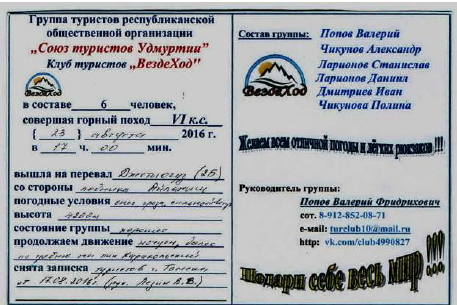 Группа туристов республиканской
общественной организации
„Союз туристов Удмуртии"
Клуб туристов „ВездеХод"
ВездеХод
в составе 6 человек,
совершая горный поход VI к.с.
{ 23 } августа 2016 г.
в 17 ч. 00 мин.
вышла на перевал (2Б)
со стороны ледника
погодные условия
высота
состояние группы хорошее
продолжаем движение
по гребню
снята записка туристов г.
от 17.08.2016г. (рук. В.В.)
Состав группы: Попов Валерий
Чикунов Александр
Ларионов Станислав
Ларионов Даниил
Дмитриев Иван
Чикунова Полина
ВездеХод
Желаем всем отличной погоды и лёгких рюкзаков !!!
Руководитель группы:
Попов Валерий Фридрихович
сот. 8-912-852-08-71
e-mail: turclub10@mail.ru
http: vk.com/club4990827
Подари себе весь МИР !!!